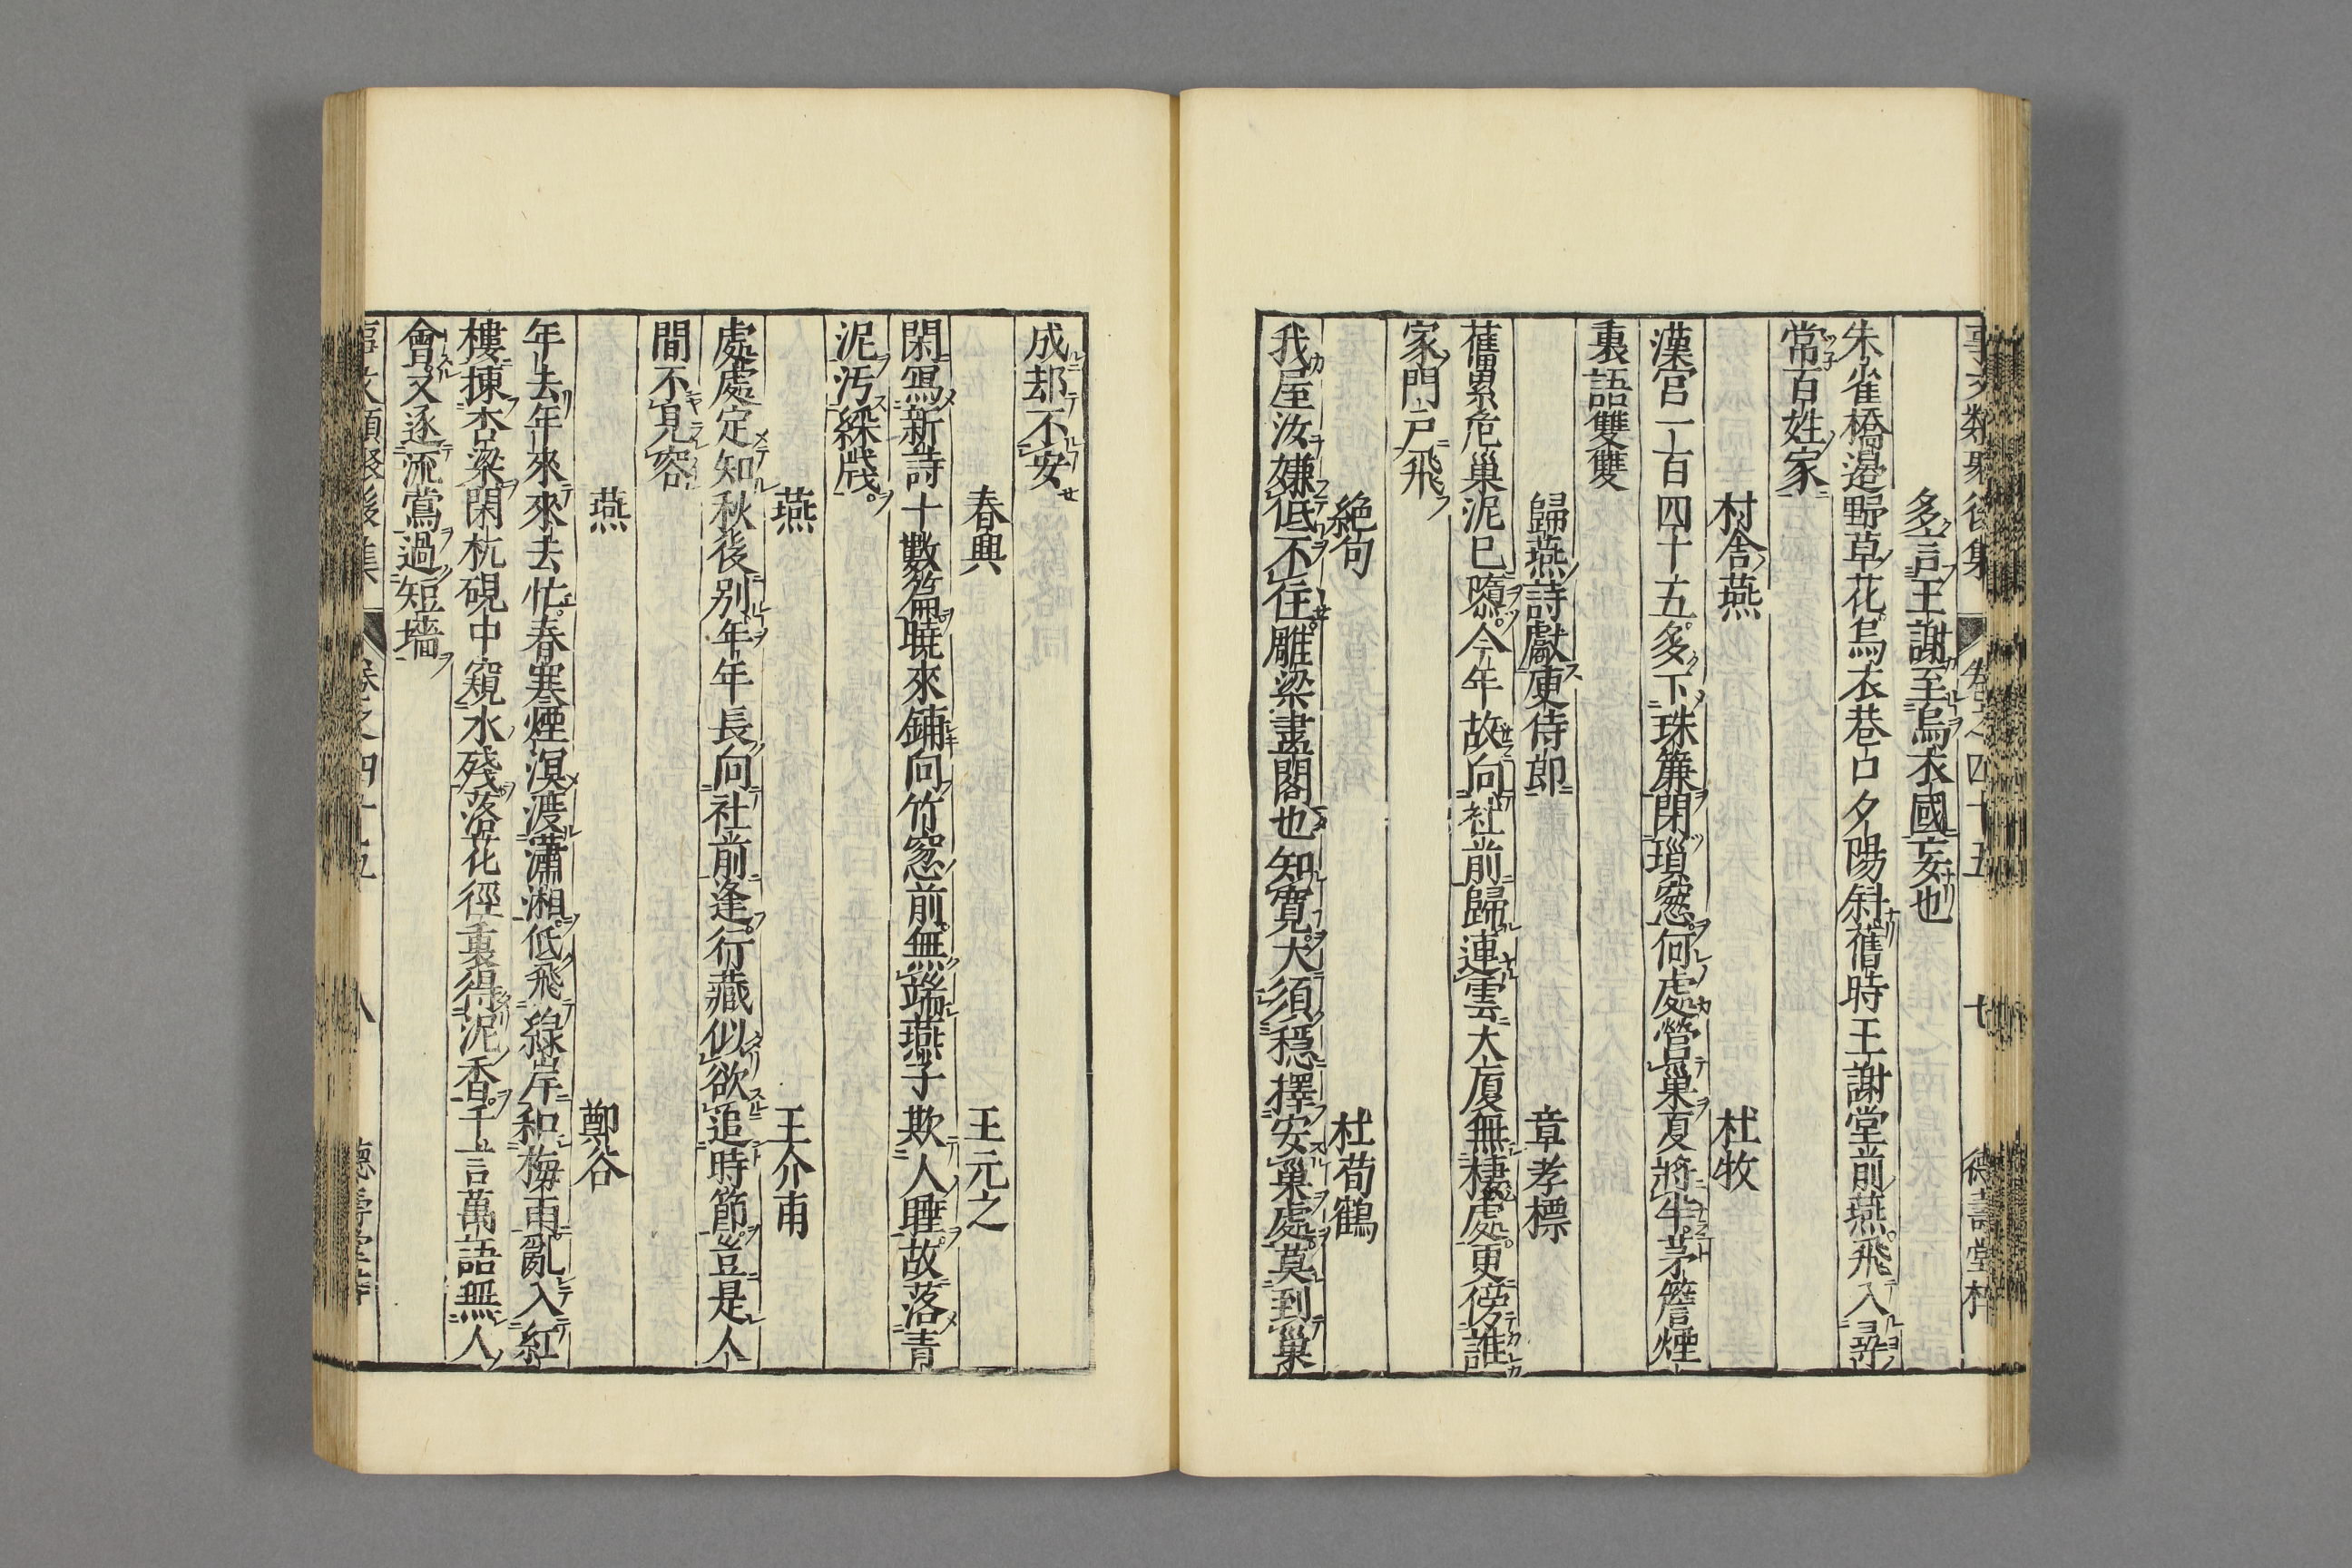 事文類聚後集 卷之四十五 七 德壽堂梓
多言王謝至烏衣國妄也
朱雀橋邉野草花烏衣巷口夕陽斜舊時王謝堂前燕飛入尋
常百姓家
村舎燕 杜牧
漢宫一百四十五多下珠簾閉瑣窓何處營巢夏將半茅簷煙
裏語雙雙
歸燕詩獻庚侍郎 章孝標
舊累危巢泥已墮今年故向社前歸連雲大厦無棲處更傍誰
家門戸飛
絶句 杜荀鶴
我屋汝嫌低不住雕梁畫閣也知寛大須穩擇安巢處莫到巢
成却不安
春興 王元之
閑寫新詩十數篇曉來鋪向竹窓前無端燕子欺人睡故落青
泥汚綵牋
燕 王介甫
處處定知秋後别年年長向社前逢行藏似欲追時節豈是人
間不見容
燕 鄭谷
年去年來來去忙春寒煙溟渡瀟湘低飛綠岸和梅雨亂入紅
樓揀杏梁閑杭硯中窺水殘落花徑裏得泥香千言萬語無人
會又逐流鶯過短墻
卷之四十五 八